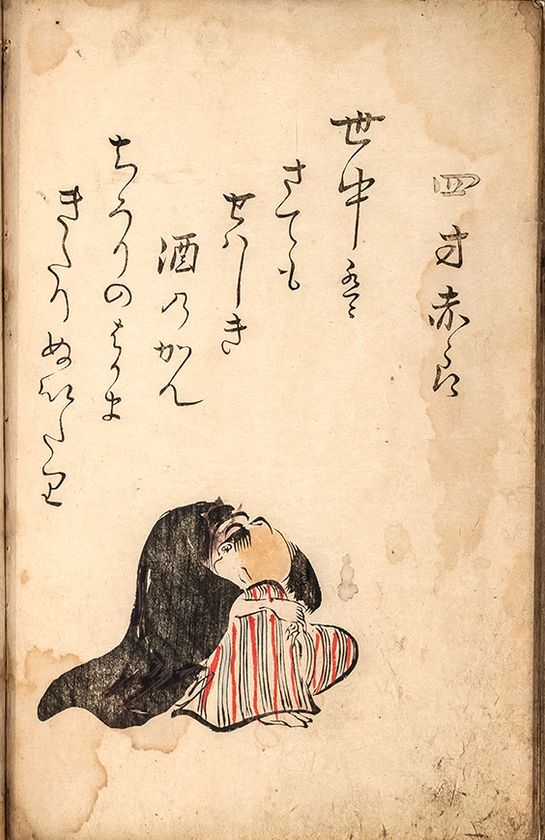 四方赤良
世中は
さても
せハしき
酒のかん
ちろりのはかま
きたりぬいたり